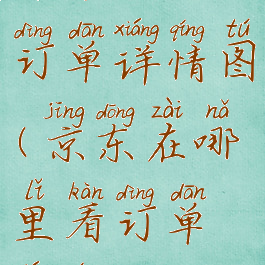 dìng dān xiáng qíng tú
订单详情图
jīng dōng zài nǎ
(京东在哪
lǐ kàn dìng dān
里看订单